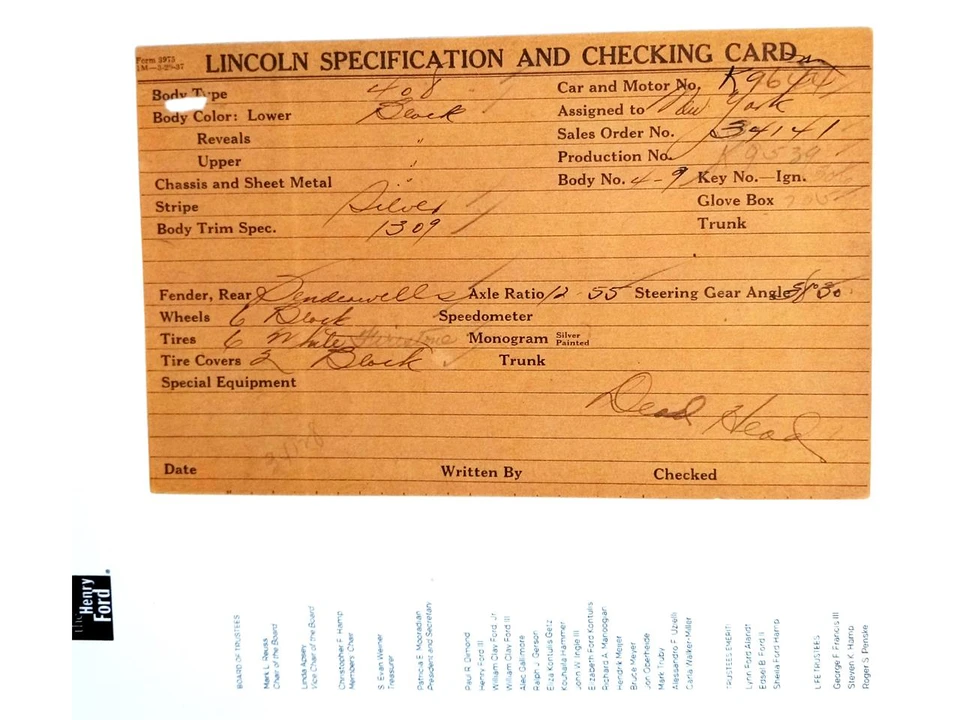 Form 3975
LINCOLN SPECIFICATION AND CHECKING CARD
Body Type 408 Car and Motor No.
Body Color: Lower Black Assigned to New York
Reveals " Sales Order No. 34141
Upper " Production No. K9539
Chassis and Sheet Metal " Body No. 4-9 Key No.—Ign.
Stripe Silver Glove Box
Body Trim Spec. 1309 Trunk
Fender, Rear Axle Ratio 12-55 Steering Gear Angle
Wheels 6 Black Speedometer
Tires 6 White Firestone Monogram Silver Painted
Tire Covers 2 Black Trunk
Special Equipment
Dead Head
Date Written By Checked
The Henry Ford
BOARD OF TRUSTEES
Mark L. Reuss
Chair of the Board
Linda Apsey
Vice Chair of the Board
Christopher F. Hamp
Members' Chair
S. Evan Weiner
Treasurer
Patricia E. Mooradian
President and Secretary
Paul R. Dimond
Henry Ford III
William Clay Ford Jr.
William Clay Ford III
Alec Gallimore
Ralph J. Gerson
Eliza Kontulis Getz
Kouhaila Hammer
John W. Ingle III
Elizabeth Ford Kontulis
Richard A. Manoogian
Hendrik Meijer
Bruce Meyer
Jon Oberheide
Mark Truby
Alessandro F. Uzielli
Carla Walker-Miller
TRUSTEES EMERITI
Lynn Ford Alandt
Edsel B. Ford II
Sheila Ford Hamp
LIFE TRUSTEES
George F. Francis III
Steven K. Hamp
Roger S. Penske